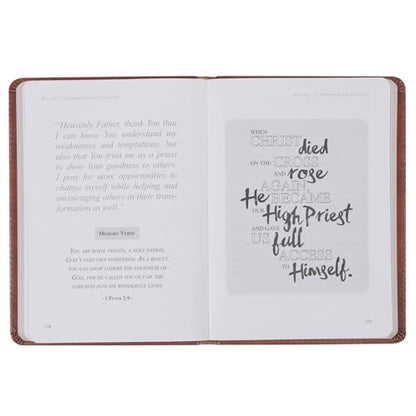 "Heavenly Father, thank You that
I can know You understand my
weaknesses and temptations, but
also that You trust me as a priest
to show Your goodness to others.
I pray for more opportunities to
change myself while helping and
encouraging others in their trans-
formation as well."
MEMORY VERSE
YOU ARE ROYAL PRIESTS, A HOLY NATION,
GOD'S VERY OWN POSSESSION. AS A RESULT,
YOU CAN SHOW OTHERS THE GOODNESS OF
GOD, FOR HE CALLED YOU OUT OF THE
DARKNESS INTO HIS WONDERFUL LIGHT.
- 1 PETER 2:9 -
WHEN
CHRIST died
ON THE CROSS
AND rose
AGAIN,
He BECAME
OUR High Priest
AND GAVE
US full
ACCESS
TO Himself.